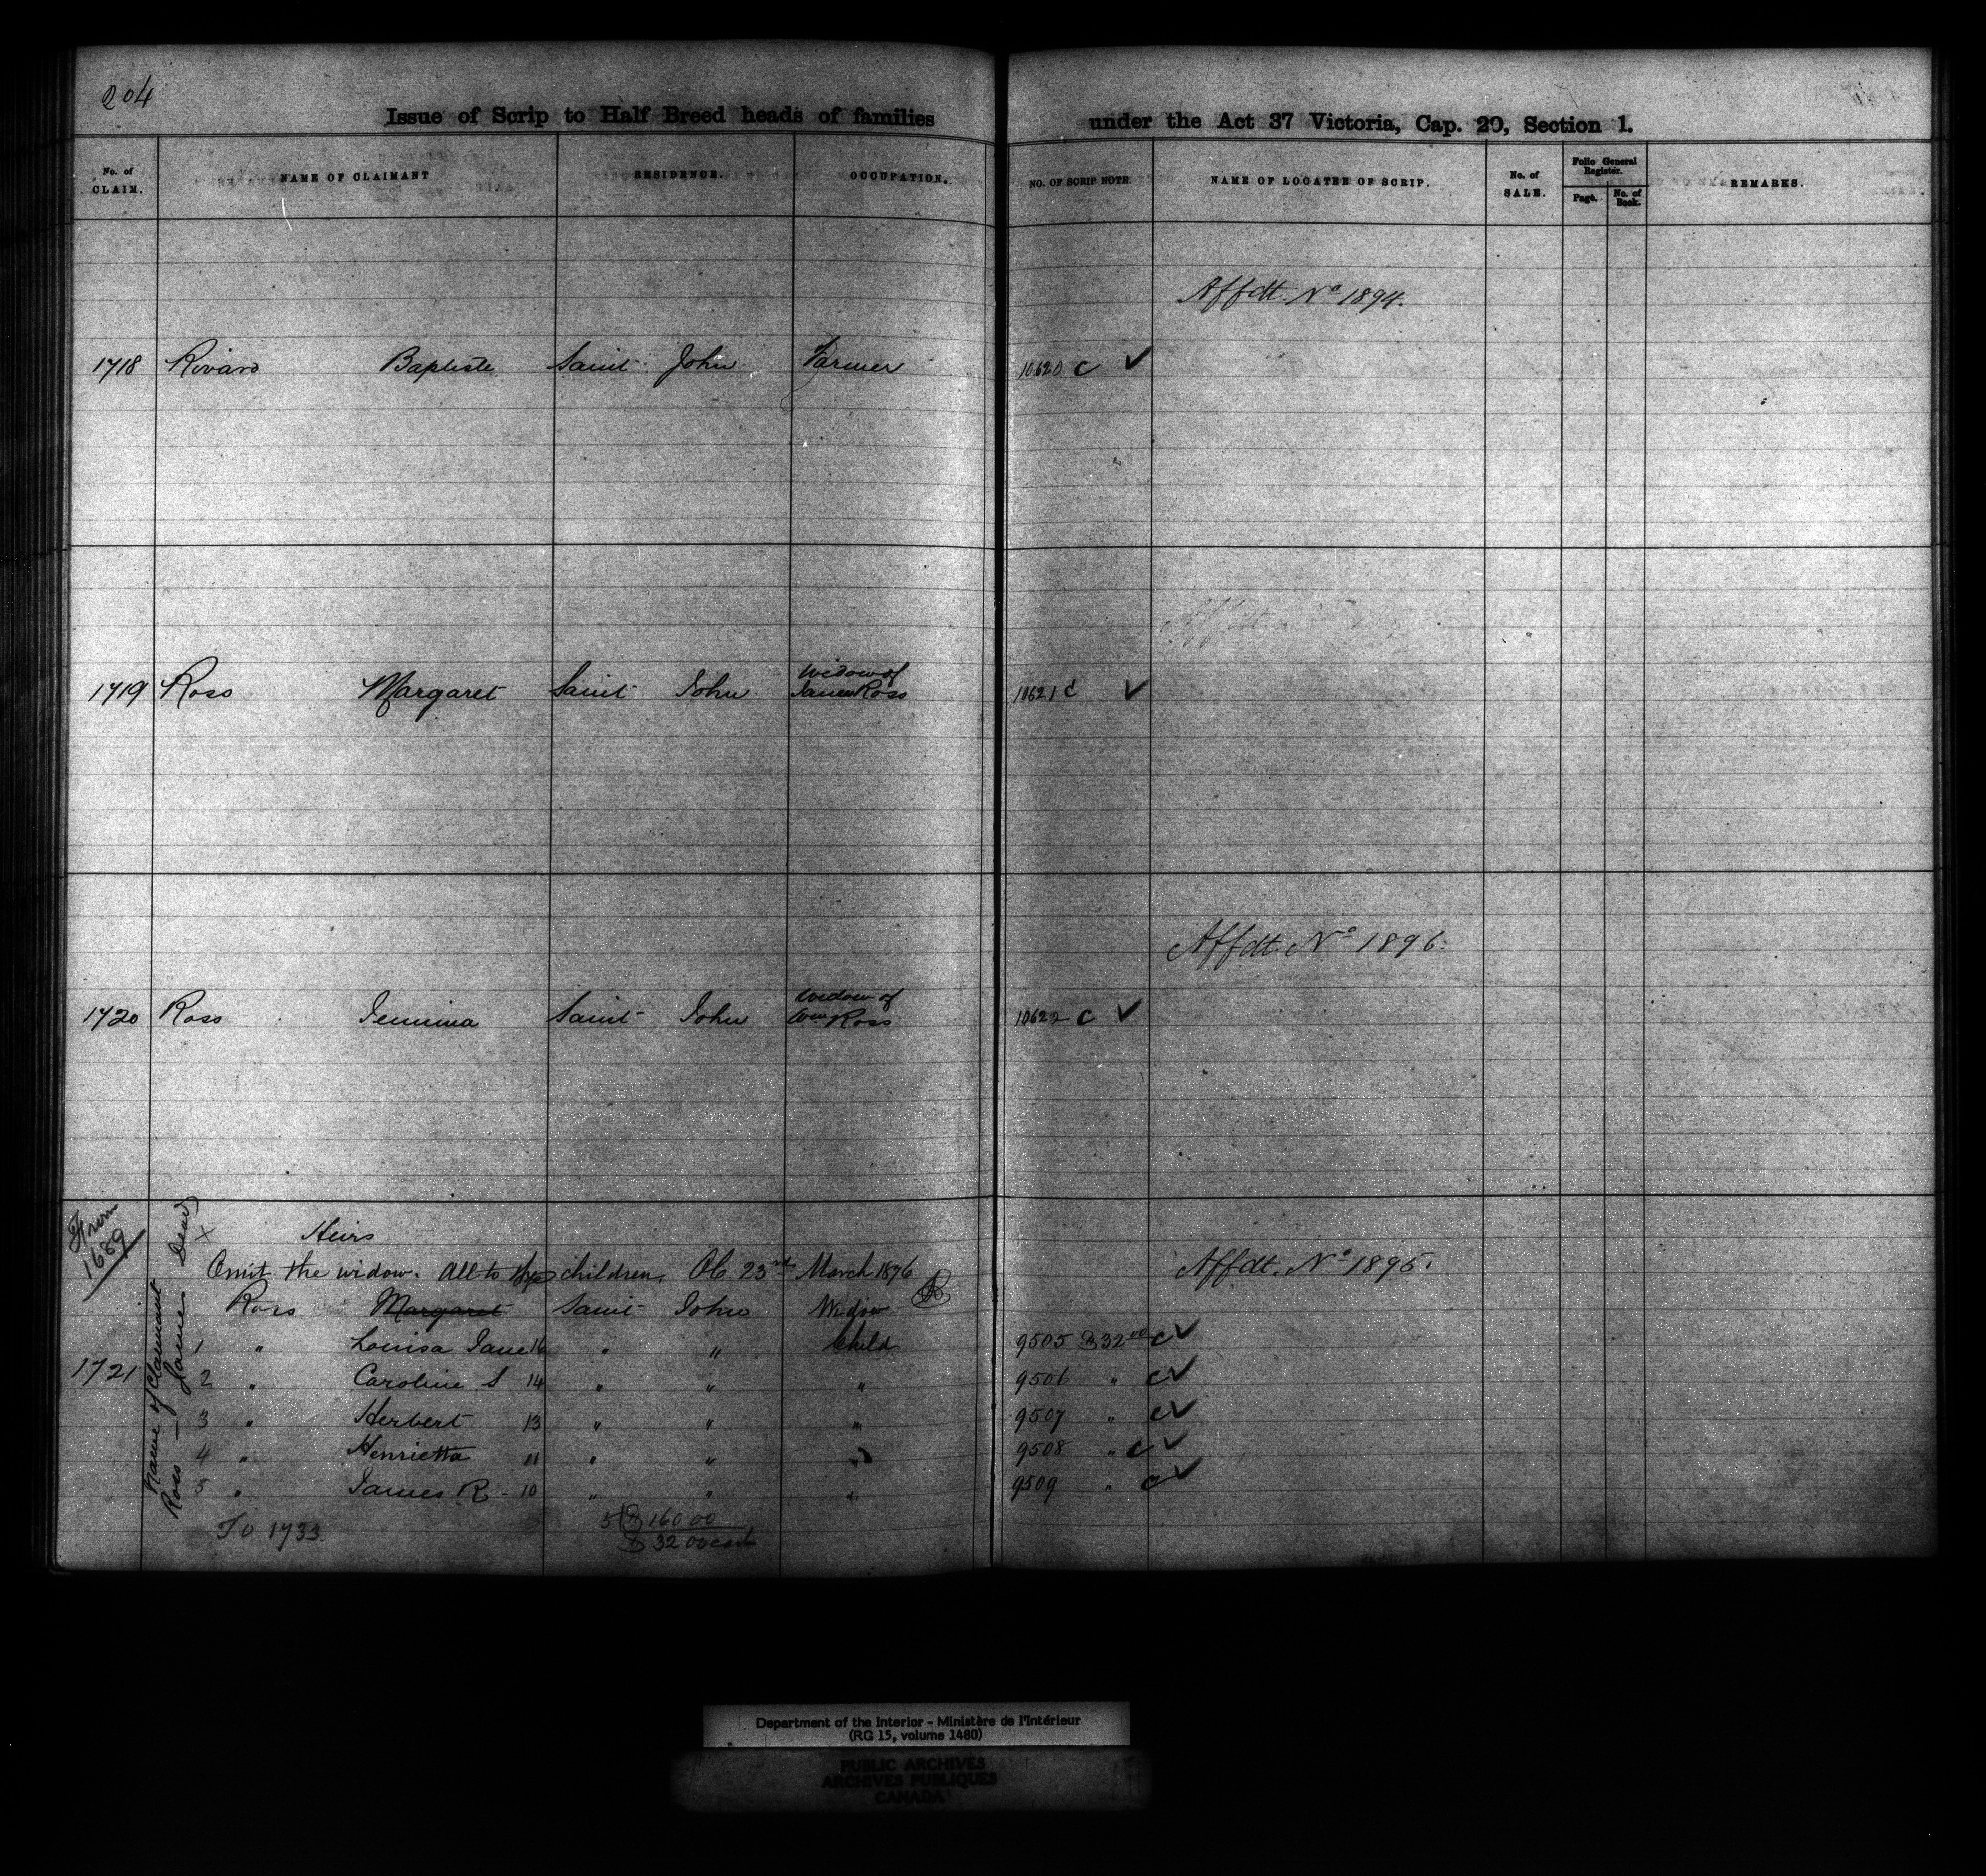 204
Issue of Scrip to Half Breed heads of families under the Act 37 Victoria, Cap. 20, Section 1.
No. of CLAIM. NAME OF CLAIMANT RESIDENCE. OCCUPATION. NO. OF SCRIP NOTE. NAME OF LOCATEE OF SCRIP. No. of SALE. Folio General Register. Page. No. of Book. REMARKS.
Affdt. No 1894.
1718 Rivard Baptiste Saint John Farmer 10620 c ✓
Widow of
1719 Ross Margaret Saint John James Ross 10621 c ✓
Affdt. No 1896.
Widow of
1720 Ross Jemima Saint John Wm Ross 10622 c ✓
From 1689
Name of Claimant
Ross - James Dead
× Heirs
Omit the widow. All to the children. Ob. 23rd March 1876
Affdt. No 1895.
Ross Margaret Saint John Widow
1721
1 " Louisa Jane 16 " " Child 9505 $32 00 c ✓
2 " Caroline S 14 " " " 9506 " c ✓
3 " Herbert 13 " " " 9507 " c ✓
4 " Henrietta 11 " " " 9508 " c ✓
5 " James R - 10 " " " 9509 " c ✓
To 1733.
5 $160 00
$ 32 00 each
Department of the Interior - Ministère de l'Intérieur
(RG 15, volume 1480)
PUBLIC ARCHIVES
ARCHIVES PUBLIQUES
CANADA